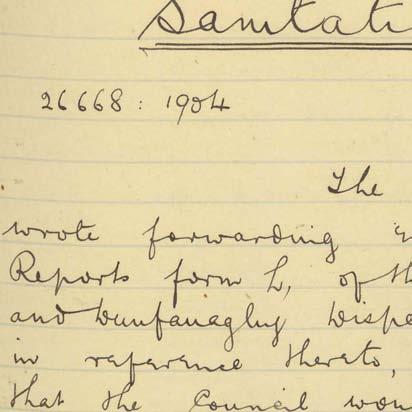 Sanitati
26668 : 1904
The
wrote forwarding
Reports form L, of th
and Dunfanaghy Dispe
in reference thereto,
that the Council won